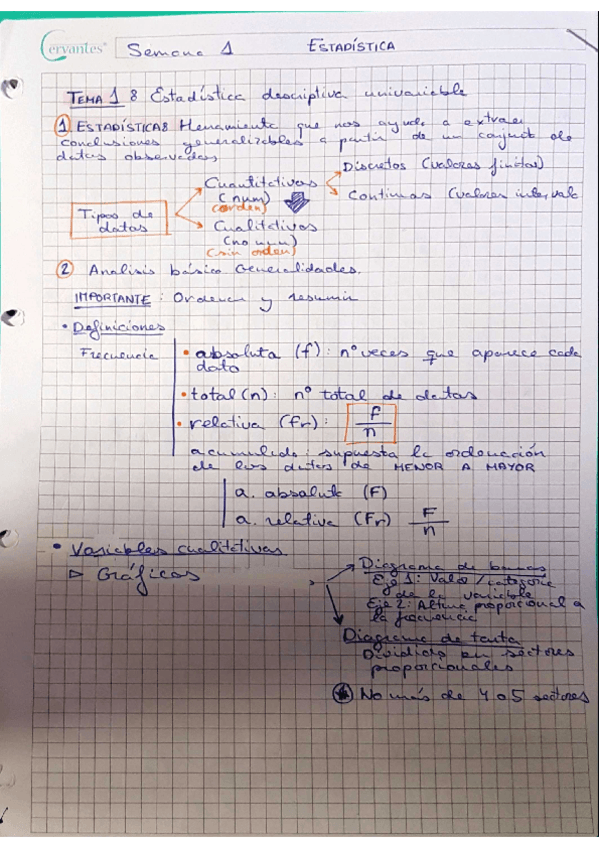 Cervantes® Semana 1 ESTADÍSTICA
TEMA 1: Estadística descriptiva univariable
1 ESTADÍSTICA: Herramienta que nos ayuda a extraer
conclusiones generalizables a partir de un conjunto de
datos observados
Tipos de datos
Cuantitativos
(num)
(orden)
Discretos (valores finitos)
Continuos (valores intervalo
Cualitativos
(no num)
(sin orden)
2 Analisis básico Generalidades.
IMPORTANTE: Ordenar y resumir
• Definiciones
Frecuencia
• absoluta (f): nº veces que aparece cada
dato
• total (n): nº total de datos
• relativa (fr): f/n
acumulada: supuesta la ordenación
de los datos de MENOR A MAYOR
a. absoluta (F)
a. relativa (Fr) F/n
• Variables cualitativas
▷ Gráficos
Diagrama de barras
Eje 1: Valor/categoria
de la variable
Eje 2: Altura proporcional a
la frecuencia
Diagrama de tarta
Dividido en sectores
proporcionales
No más de 4 o 5 sectores